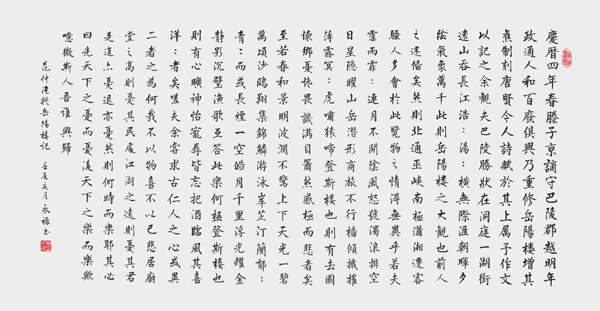 慶曆四年春滕子京謫守巴陵郡越明年
政通人和百廢俱興乃重修岳陽樓增其
舊制刻唐賢今人詩賦於其上屬予作文
以記之余觀夫巴陵勝狀在洞庭一湖銜
遠山吞長江浩〻湯〻橫無際涯朝暉夕
陰氣象萬千此則岳陽樓之大觀也前人
之述備矣然則北通巫峽南極瀟湘遷客
騷人多會於此覽物之情得無異乎若夫
霪雨霏〻連月不開陰風怒號濁浪排空
日星隱曜山岳潛形商旅不行檣傾楫摧
薄暮冥〻虎嘯猿啼登斯樓也則有去國
懷鄉憂讒畏譏滿目蕭然感極而悲者矣
至若春和景明波瀾不驚上下天光一碧
萬頃沙鷗翔集錦鱗游泳岸芷汀蘭郁〻
青〻而或長煙一空皓月千里浮光耀金
靜影沉璧漁歌互答此樂何極登斯樓也
則有心曠神怡寵辱皆忘把酒臨風其喜
洋〻者矣嗟夫余嘗求古仁人之心或異
二者之為何哉不以物喜不以己悲居廟
堂之高則憂其民處江湖之遠則憂其君
是進亦憂退亦憂然則何時而樂耶其必
曰先天下之憂而憂後天下之樂而樂歟
噫微斯人吾誰與歸
范仲淹撰岳陽樓記